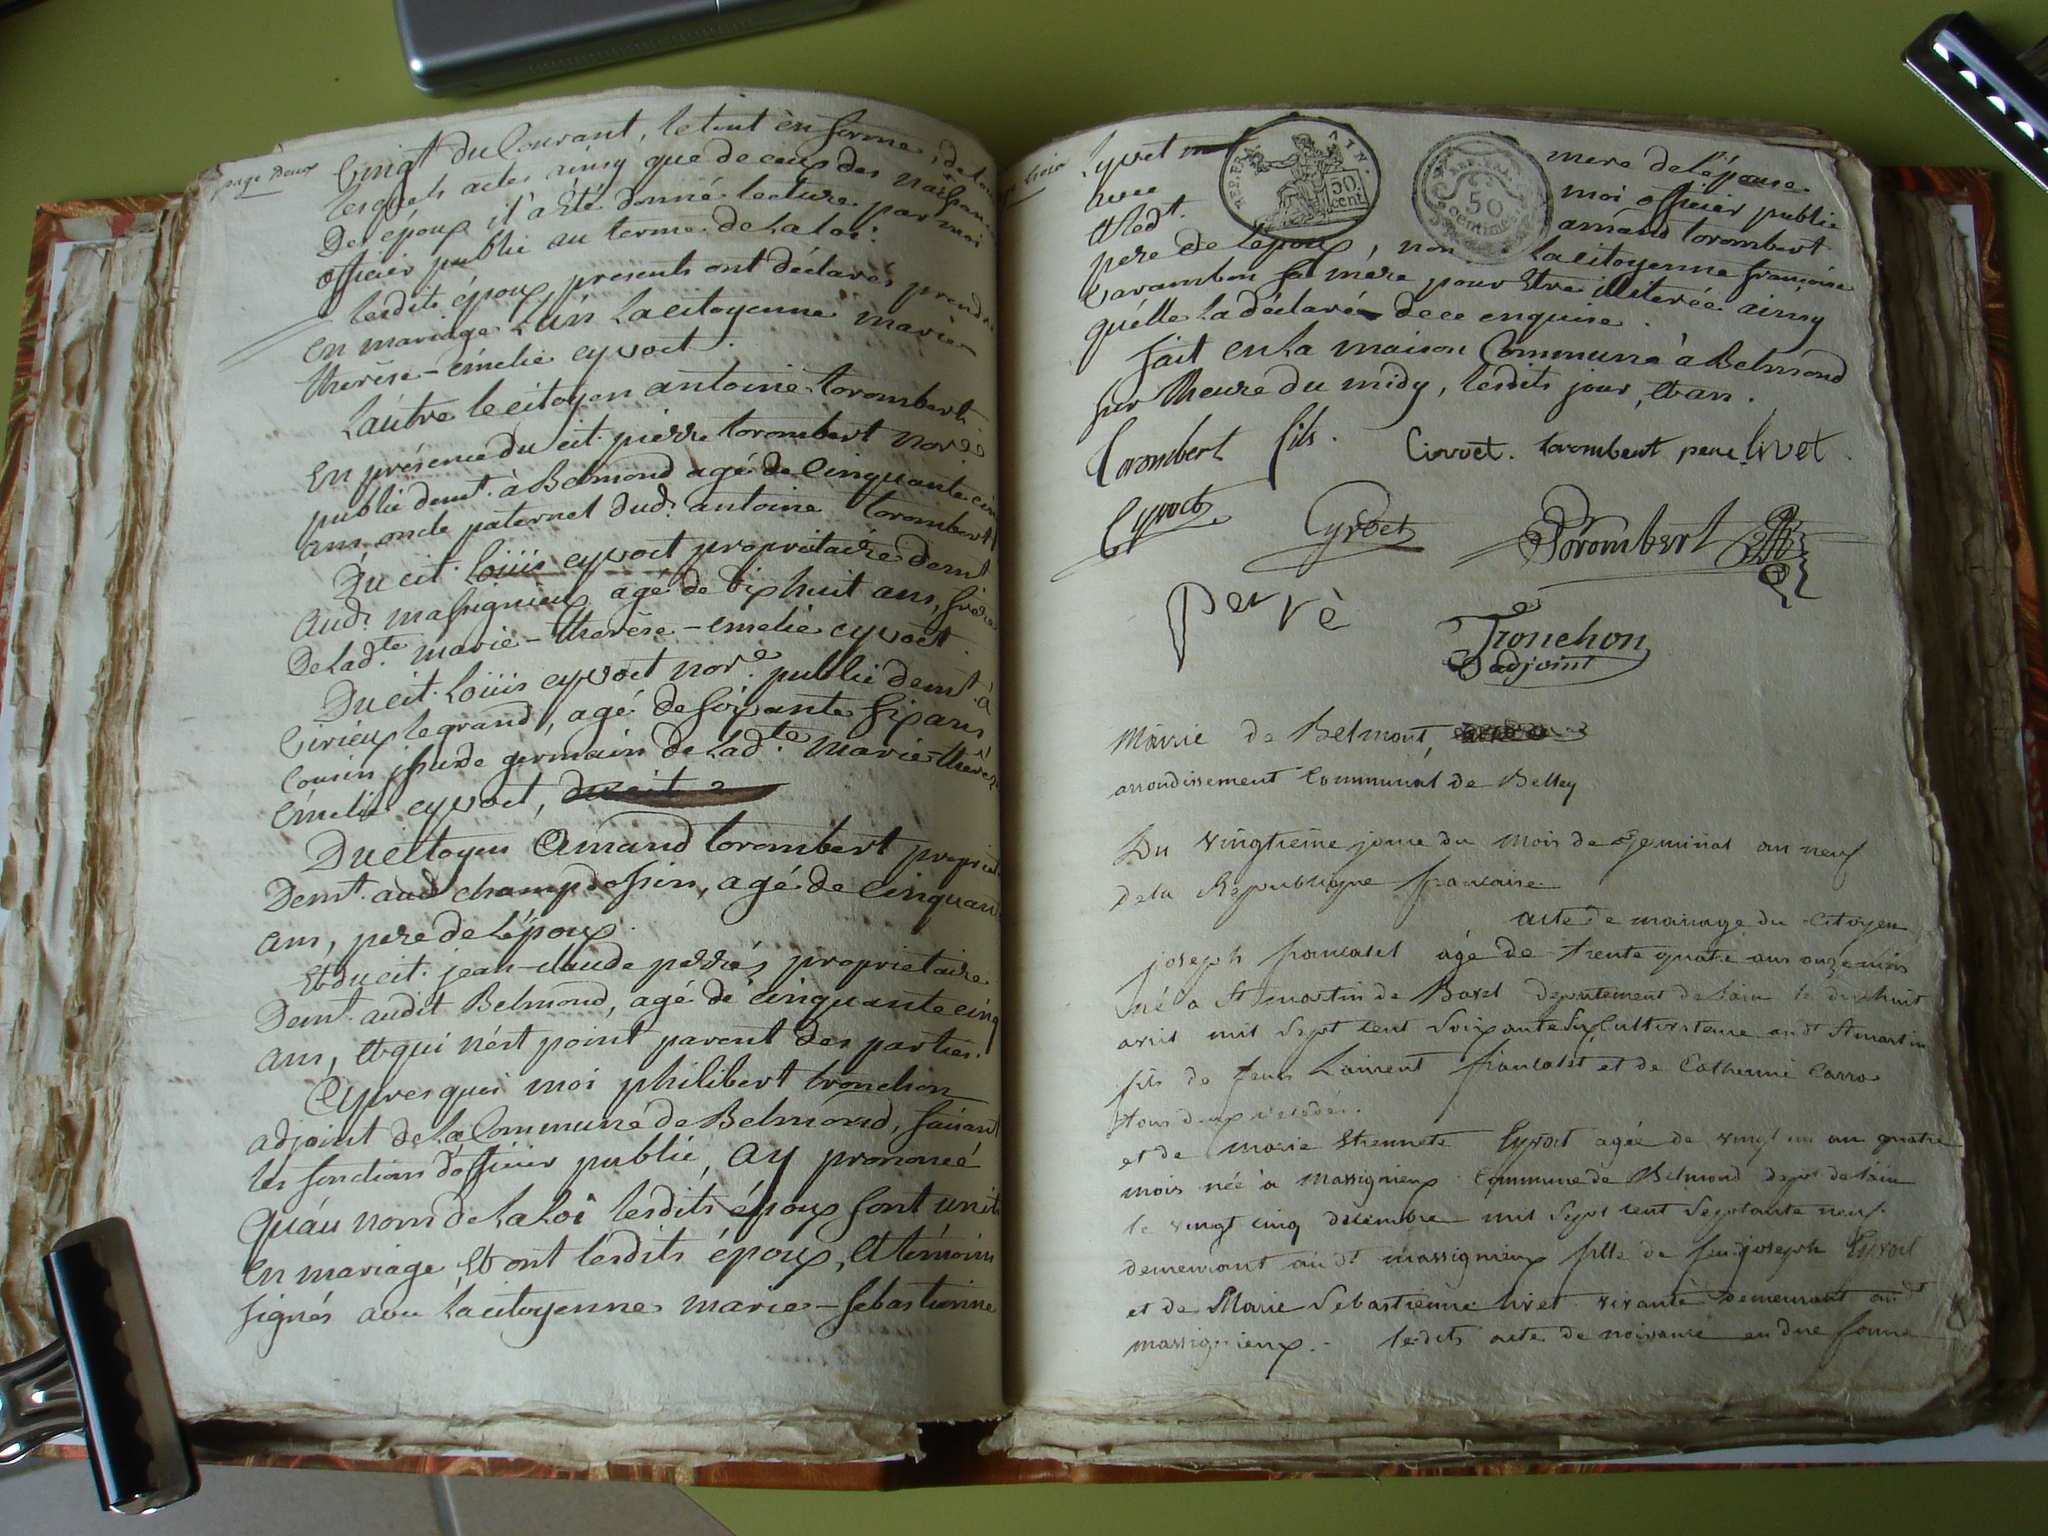 page deux
vingt du Courant, le tout en forme, de tous
lesquels actes ainsy que de ceux des
Des époux il a été donné lecture par moi
officier public au terme de la loi.
lesdits époux presents ont déclarés prendre
en mariage L'un La citoyenne marie
therese-emelie cyvoct.
L'autre le citoyen antoine torombert.
En présence du cit. pierre torombert nore
public demt. à Belmond agé de Cinquante cinq
ans oncle paternel dudt. antoine torombert
Du cit. Louis cyvoct propriétaire demt
audt massignieux agé de dix huit ans, frère
De ladte. marie-therese-emelie cyvoct.
Du cit. Louis cyvoct nore. public demt. à
Cirieux legrand, agé de soixante six ans
Cousin issu de germain de ladte. marie therese
emelie cyvoct,
Du citoyen Amand torombert propriet
Demt. aud champdossin, agé de cinquante
ans, pere de l'époux.
Et du cit. jean-claude perret propriétaire
Demt. audit Belmond, agé de cinquante cinq
ans, et qui n'est point parent des parties.
Apres quoi moi philibert tronchon
adjoint de la Commune de Belmond, faisant
les fonctions d'officier public, ay prononcé
Qu'au nom de La Loi lesdits époux sont unit
En mariage, Et ont lesdits époux, et témoins
signés avec La citoyenne marie-sebastienne
page trois
Lyvet mere de l'épouse.
avec moi officier public
et ledt. amand torombert
REP. FRA. 50 cent.
REP. FRA. 50 centimes
pere de l'epoux, non La citoyenne françoise
Carambon sa mere pour être illiterée ainsy
qu'elle la déclaré de ce enquise.
fait en La maison Commune à Belmond
sur l'heure du midy, lesdits jour, et an.
Torombert fils. Civoct. torombert pere. livet.
Cyvoct Cyvoct Torombert
Per rè
Tronchon
adjoint
Mairie de Belmont,
arrondissement Communal de Belley
Du vingtieme jour du mois de Germinal an neuf
de la République francaise.
acte de mariage du Citoyen
joseph francalet agé de trente quatre ans onze mois
né a St martin de Bavel departement de lain le dix huit
avril mil Sept cent Soixante Six Cultivateur audt St martin
fils de feus Laurent francalet et de Catherine Carro
tous deux décédés.
et de marie Etiennete Cyvoct agée de vingt un an quatre
mois née à Massignieux Commune de Belmond dept de lain
le vingt cinq décembre mil Sept cent Septante neuf
demeurant audt massignieux fille de feu joseph Cyvoct
et de Marie Sebastienne livet vivante demeurant audt
massignieux. - lesdits acte de naissance en due forme